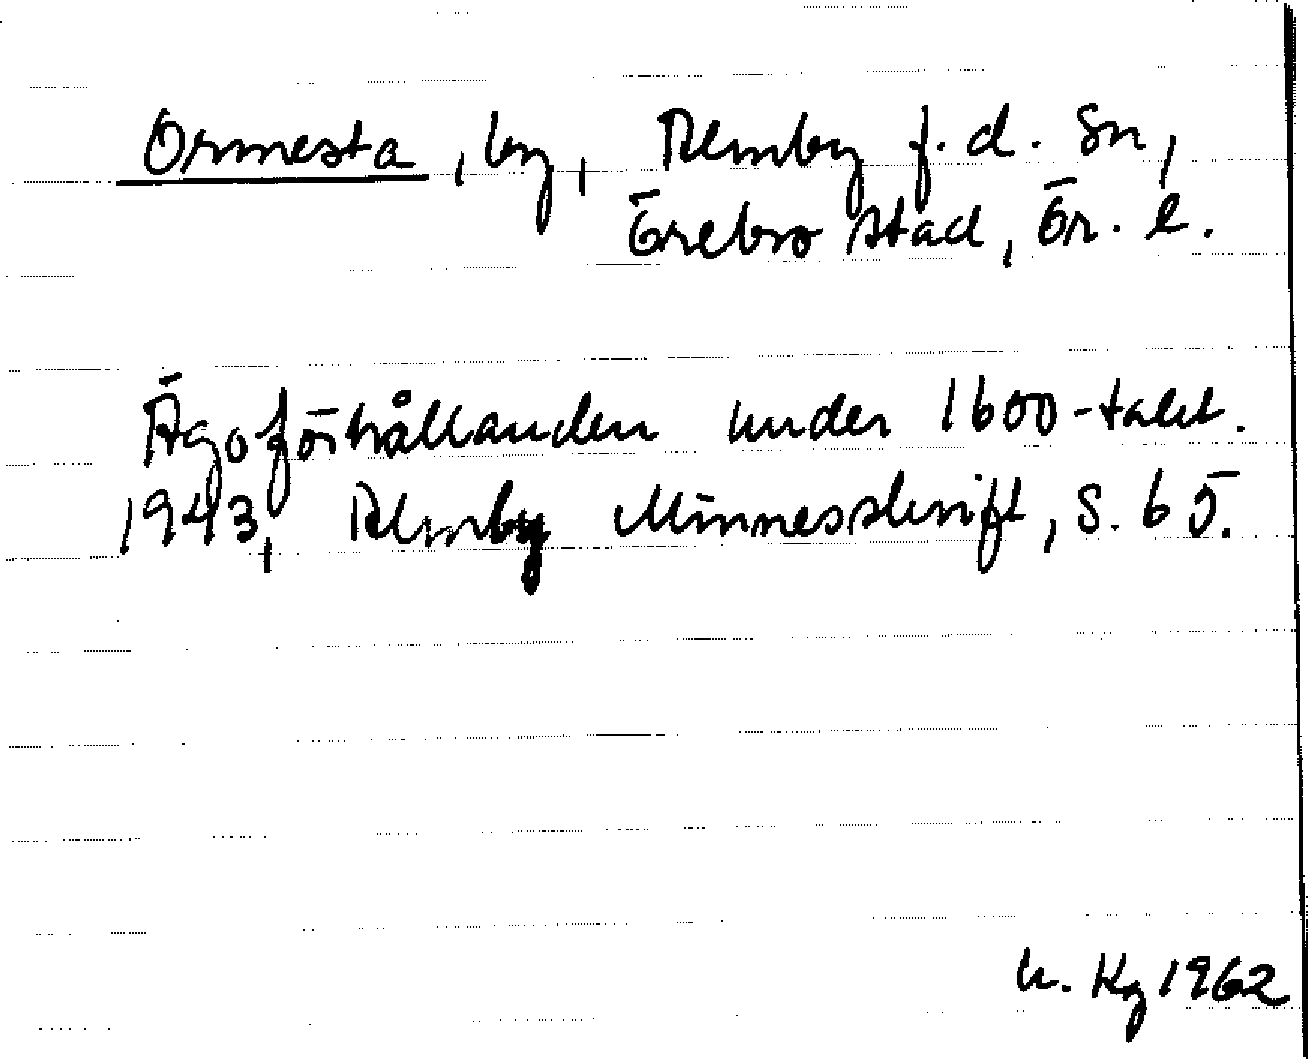 Ormesta, by, Almby f.d. sn,
Örebro stad, Ör. l.
Ägoförhållanden under 1600-talet.
1943, Almby Minnesskrift, s. 65.
K. Kg 1962